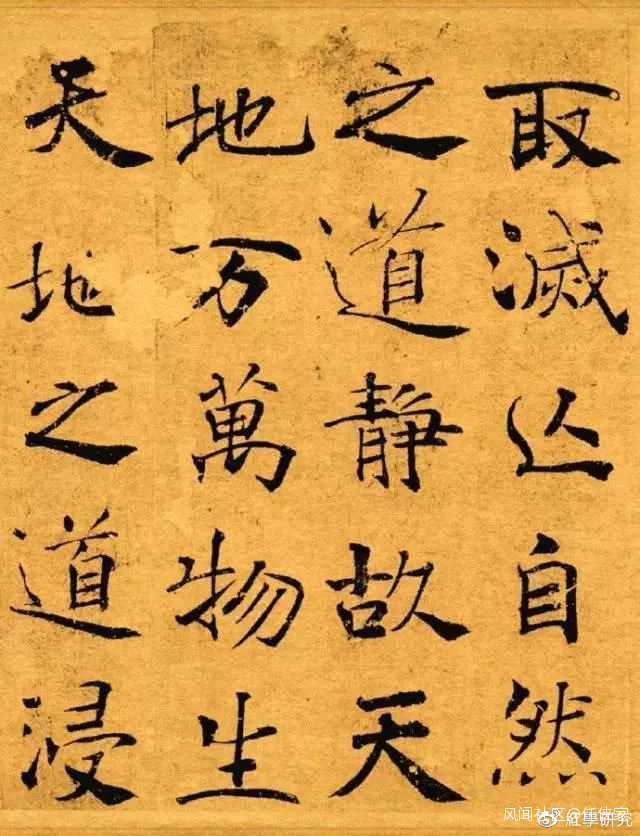 取滅亾自然
之道靜故天
地万萬物生
天地之道浸
风闻社区
紅學研究